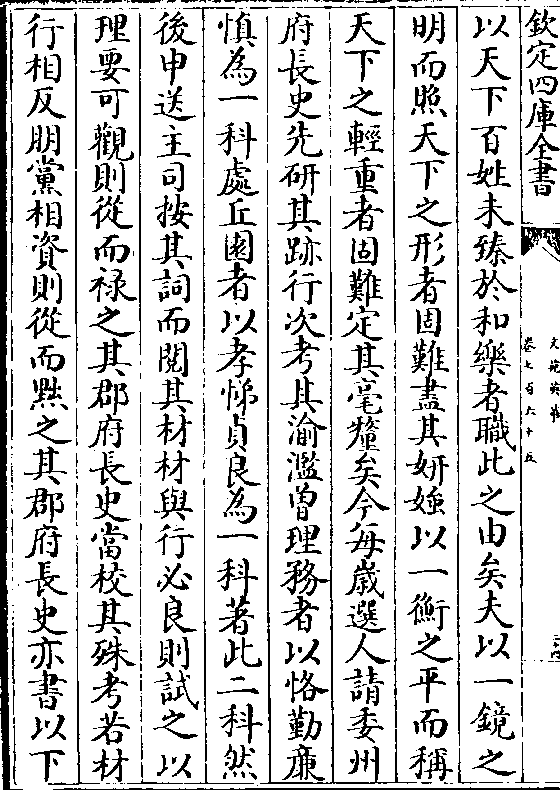 欽定四庫全書
文苑英華
卷七百六十五
以天下百姓未臻於和樂者職此之由矣夫以一鏡之
明而照天下之形者固難盡其妍媸以一衡之平而稱
天下之輕重者固難定其毫釐矣今每歲選人請委州
府長史先研其跡行次考其渝濫曽理務者以恪勤廉
慎為一科處丘園者以孝悌貞良為一科著此二科然
後申送主司按其詞而閱其材材與行必良則試之以
理要可觀則從而祿之其郡府長史當校其殊考若材
行相反朋黨相資則從而黜之其郡府長史亦書以下